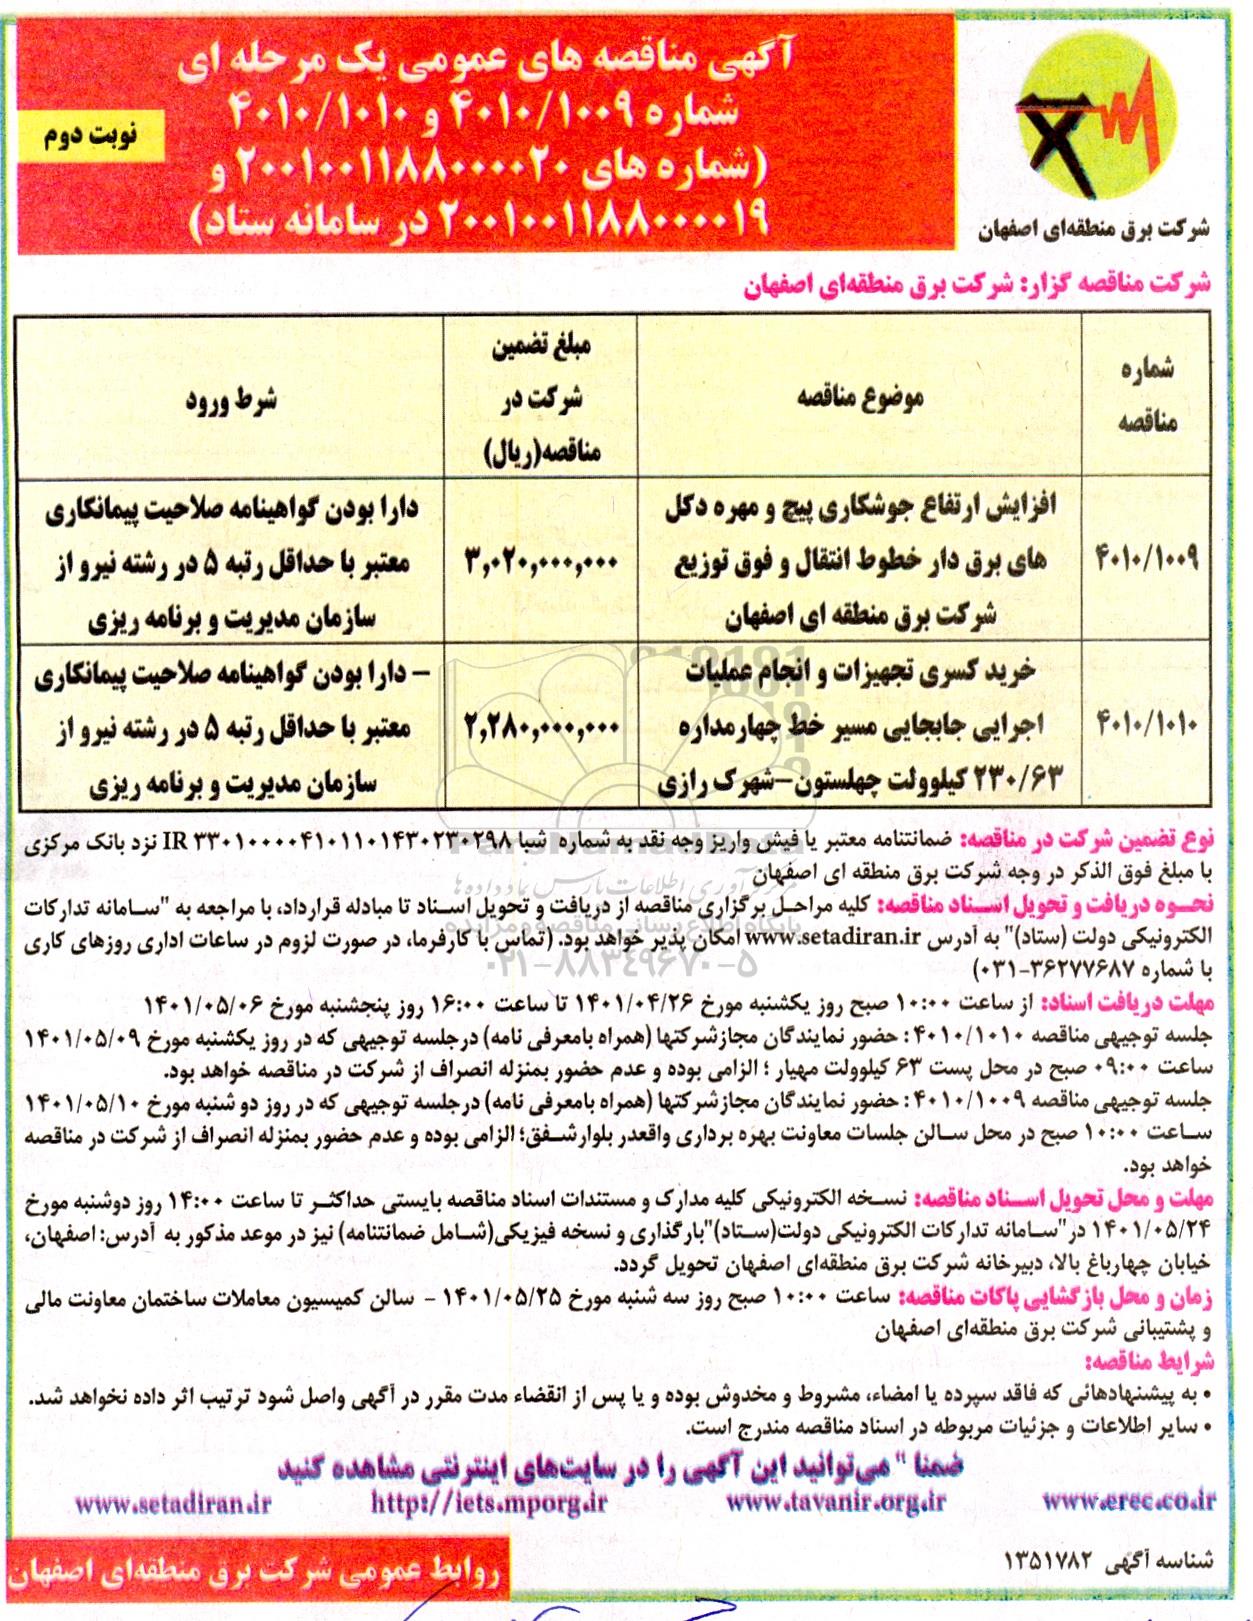 آگهی مناقصه های عمومی یک مرحله ای
شماره ۴۰۱۰/۱۰۰۹ و ۴۰۱۰/۱۰۱۰
(شماره های ۲۰۰۱۰۰۱۱۸۸۰۰۰۰۲۰ و
۲۰۰۱۰۰۱۱۸۸۰۰۰۰۱۹ در سامانه ستاد)
نوبت دوم
شرکت برق منطقه‌ای اصفهان
شرکت مناقصه گزار: شرکت برق منطقه‌ای اصفهان
شماره مناقصه
موضوع مناقصه
مبلغ تضمین شرکت در مناقصه(ریال)
شرط ورود
۴۰۱۰/۱۰۰۹
افزایش ارتفاع جوشکاری پیچ و مهره دکل
های برق دار خطوط انتقال و فوق توزیع
شرکت برق منطقه ای اصفهان
۳,۰۲۰,۰۰۰,۰۰۰
دارا بودن گواهینامه صلاحیت پیمانکاری
معتبر با حداقل رتبه ۵ در رشته نیرو از
سازمان مدیریت و برنامه ریزی
۴۰۱۰/۱۰۱۰
خرید کسری تجهیزات و انجام عملیات
اجرایی جابجایی مسیر خط چهارمداره
۲۳۰/۶۳ کیلوولت چهلستون-شهرک رازی
۲,۲۸۰,۰۰۰,۰۰۰
- دارا بودن گواهینامه صلاحیت پیمانکاری
معتبر با حداقل رتبه ۵ در رشته نیرو از
سازمان مدیریت و برنامه ریزی
نوع تضمین شرکت در مناقصه: ضمانتنامه معتبر یا فیش واریز وجه نقد به شماره شبا IR ۳۳۰۱۰۰۰۰۴۱۰۱۱۰۱۴۳۰۲۳۰۲۹۸ نزد بانک مرکزی
با مبلغ فوق الذکر در وجه شرکت برق منطقه ای اصفهان
نحوه دریافت و تحویل اسناد مناقصه: کلیه مراحل برگزاری مناقصه از دریافت و تحویل اسناد تا مبادله قرارداد، با مراجعه به "سامانه تدارکات
الکترونیکی دولت (ستاد)" به آدرس www.setadiran.ir امکان پذیر خواهد بود. (تماس با کارفرما، در صورت لزوم در ساعات اداری روزهای کاری
با شماره ۳۶۲۷۷۶۸۷-۰۳۱)
مهلت دریافت اسناد: از ساعت ۱۰:۰۰ صبح روز یکشنبه مورخ ۱۴۰۱/۰۴/۲۶ تا ساعت ۱۶:۰۰ روز پنجشنبه مورخ ۱۴۰۱/۰۵/۰۶
جلسه توجیهی مناقصه ۴۰۱۰/۱۰۱۰ : حضور نمایندگان مجازشرکتها (همراه بامعرفی نامه) درجلسه توجیهی که در روز یکشنبه مورخ ۱۴۰۱/۰۵/۰۹
ساعت ۰۹:۰۰ صبح در محل پست ۶۳ کیلوولت مهیار ؛ الزامی بوده و عدم حضور بمنزله انصراف از شرکت در مناقصه خواهد بود.
جلسه توجیهی مناقصه ۴۰۱۰/۱۰۰۹ : حضور نمایندگان مجازشرکتها (همراه بامعرفی نامه) درجلسه توجیهی که در روز دو شنبه مورخ ۱۴۰۱/۰۵/۱۰
ساعت ۱۰:۰۰ صبح در محل سالن جلسات معاونت بهره برداری واقعدر بلوارشفق؛ الزامی بوده و عدم حضور بمنزله انصراف از شرکت در مناقصه
خواهد بود.
مهلت و محل تحویل اسناد مناقصه: نسخه الکترونیکی کلیه مدارک و مستندات اسناد مناقصه بایستی حداکثر تا ساعت ۱۴:۰۰ روز دوشنبه مورخ
۱۴۰۱/۰۵/۲۴ در"سامانه تدارکات الکترونیکی دولت(ستاد)"بارگذاری و نسخه فیزیکی(شامل ضمانتنامه) نیز در موعد مذکور به آدرس: اصفهان،
خیابان چهارباغ بالا، دبیرخانه شرکت برق منطقه‌ای اصفهان تحویل گردد.
زمان و محل بازگشایی پاکات مناقصه: ساعت ۱۰:۰۰ صبح روز سه شنبه مورخ ۱۴۰۱/۰۵/۲۵ - سالن کمیسیون معاملات ساختمان معاونت مالی
و پشتیبانی شرکت برق منطقه‌ای اصفهان
شرایط مناقصه:
• به پیشنهادهائی که فاقد سپرده یا امضاء، مشروط و مخدوش بوده و یا پس از انقضاء مدت مقرر در آگهی واصل شود ترتیب اثر داده نخواهد شد.
• سایر اطلاعات و جزئیات مربوطه در اسناد مناقصه مندرج است.
ضمنا " می‌توانید این آگهی را در سایت‌های اینترنتی مشاهده کنید
www.erec.co.ir www.tavanir.org.ir http://iets.mporg.ir www.setadiran.ir
شناسه آگهی ۱۳۵۱۷۸۲
روابط عمومی شرکت برق منطقه‌ای اصفهان
پایگاه اطلاع رسانی مناقصه و مزایده
۰۲۱-۸۸۳۴۹۶۷۰-۵